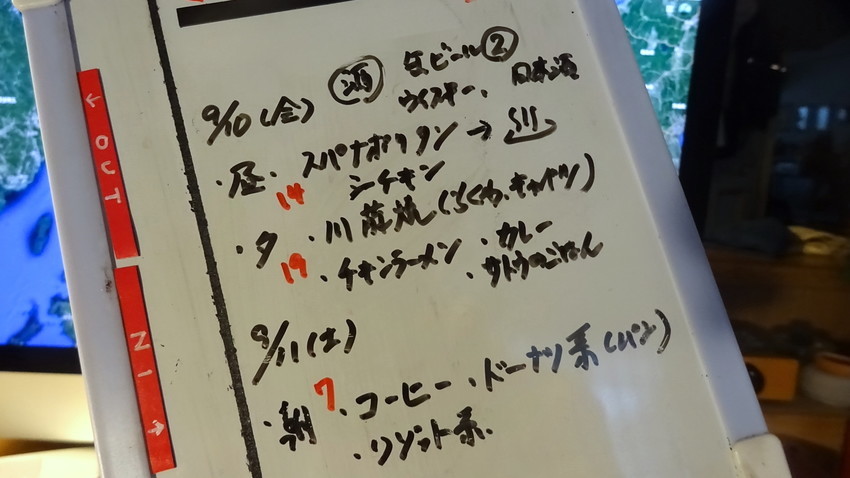 酒 生ビール②
ウイスキー、日本酒
9/10(金)
・昼、スパナポリタン→
14 シーチキン
・夕 ・川蒲焼(ちくわ、キャベツ)
19 ・チキンラーメン ・カレー
・サトウのごはん
9/11(土)
・朝 7 ・コーヒー、ドーナツ系(パン)
・リゾット系、
← OUT
IN →